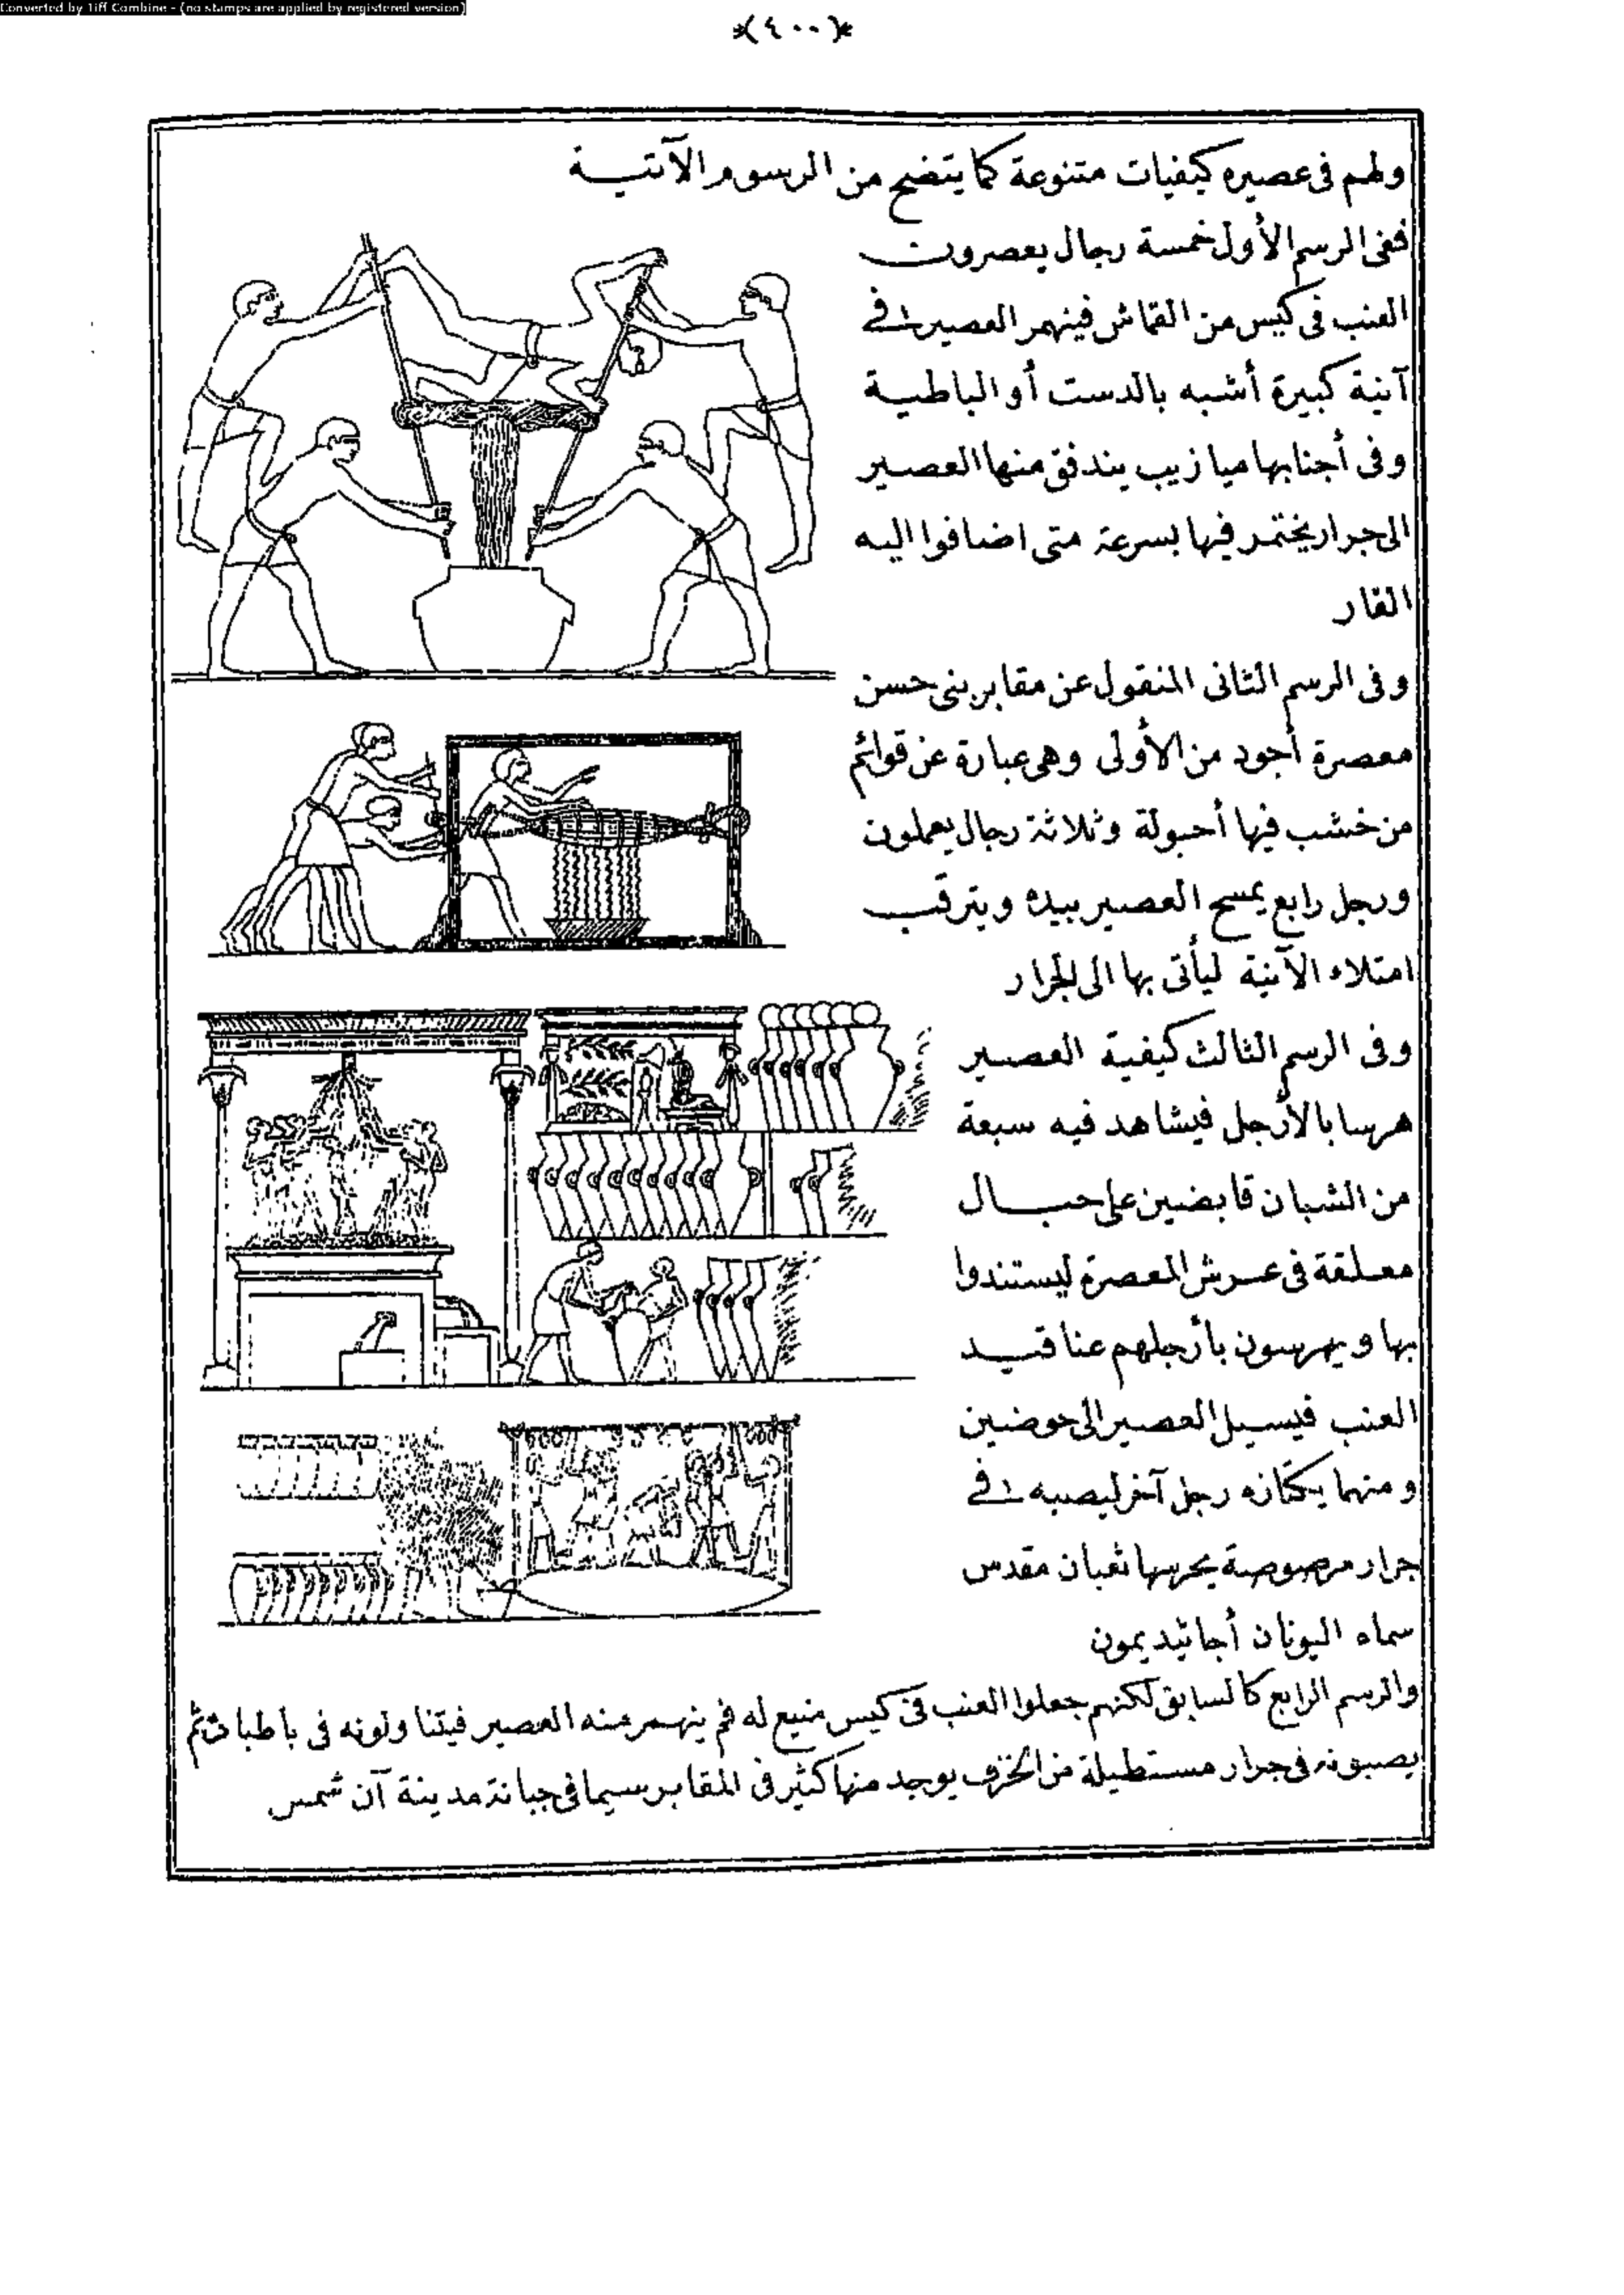 Converted by Tiff Combine - (no stamps are applied by registered version)
*(٤٠٠)*
ولهم فى عصيره كيفيات متنوعة كما يتضح من الرسوم الآتية
ففى الرسم الأول خمسة رجال يعصرون
العنب فى كيس من القماش فينهمر العصير فى
آنية كبيرة أشبه بالدست أو الباطية
وفى أجنابها ميازيب يندفق منها العصير
الى جرار يختمر فيها بسرعة متى اضافوا اليه
القار
وفى الرسم الثانى المنقول عن مقابر بنى حسن
معصرة أجود من الأولى وهى عبارة عن قوائم
من خشب فيها أحبولة وثلاثة رجال يعملون
ورجل رابع يمسح العصير بيده ويترقب
امتلاء الآنية ليأتى بها الى الجرار
وفى الرسم الثالث كيفية العصير
هرسا بالأرجل فيشاهد فيه سبعة
من الشبان قابضين على حبال
معلقة فى عرش المعصرة ليستندوا
بها ويهرسون بأرجلهم عناقيد
العنب فيسيل العصير الى حوضين
ومنهما يكتازه رجل آخر ليصبه فى
جرار مرصوصة يحرسها ثعبان مقدس
سماه اليونان أجاثيديمون
والرسم الرابع كالسابق لكنهم جعلوا العنب فى كيس منيع له فم ينهمر منه العصير فيتناولونه فى باطيات ثم
يصبونه فى جرار مستطيلة من الخزف يوجد منها كثير فى المقابر سيما فى جبانة مدينة آن شمس